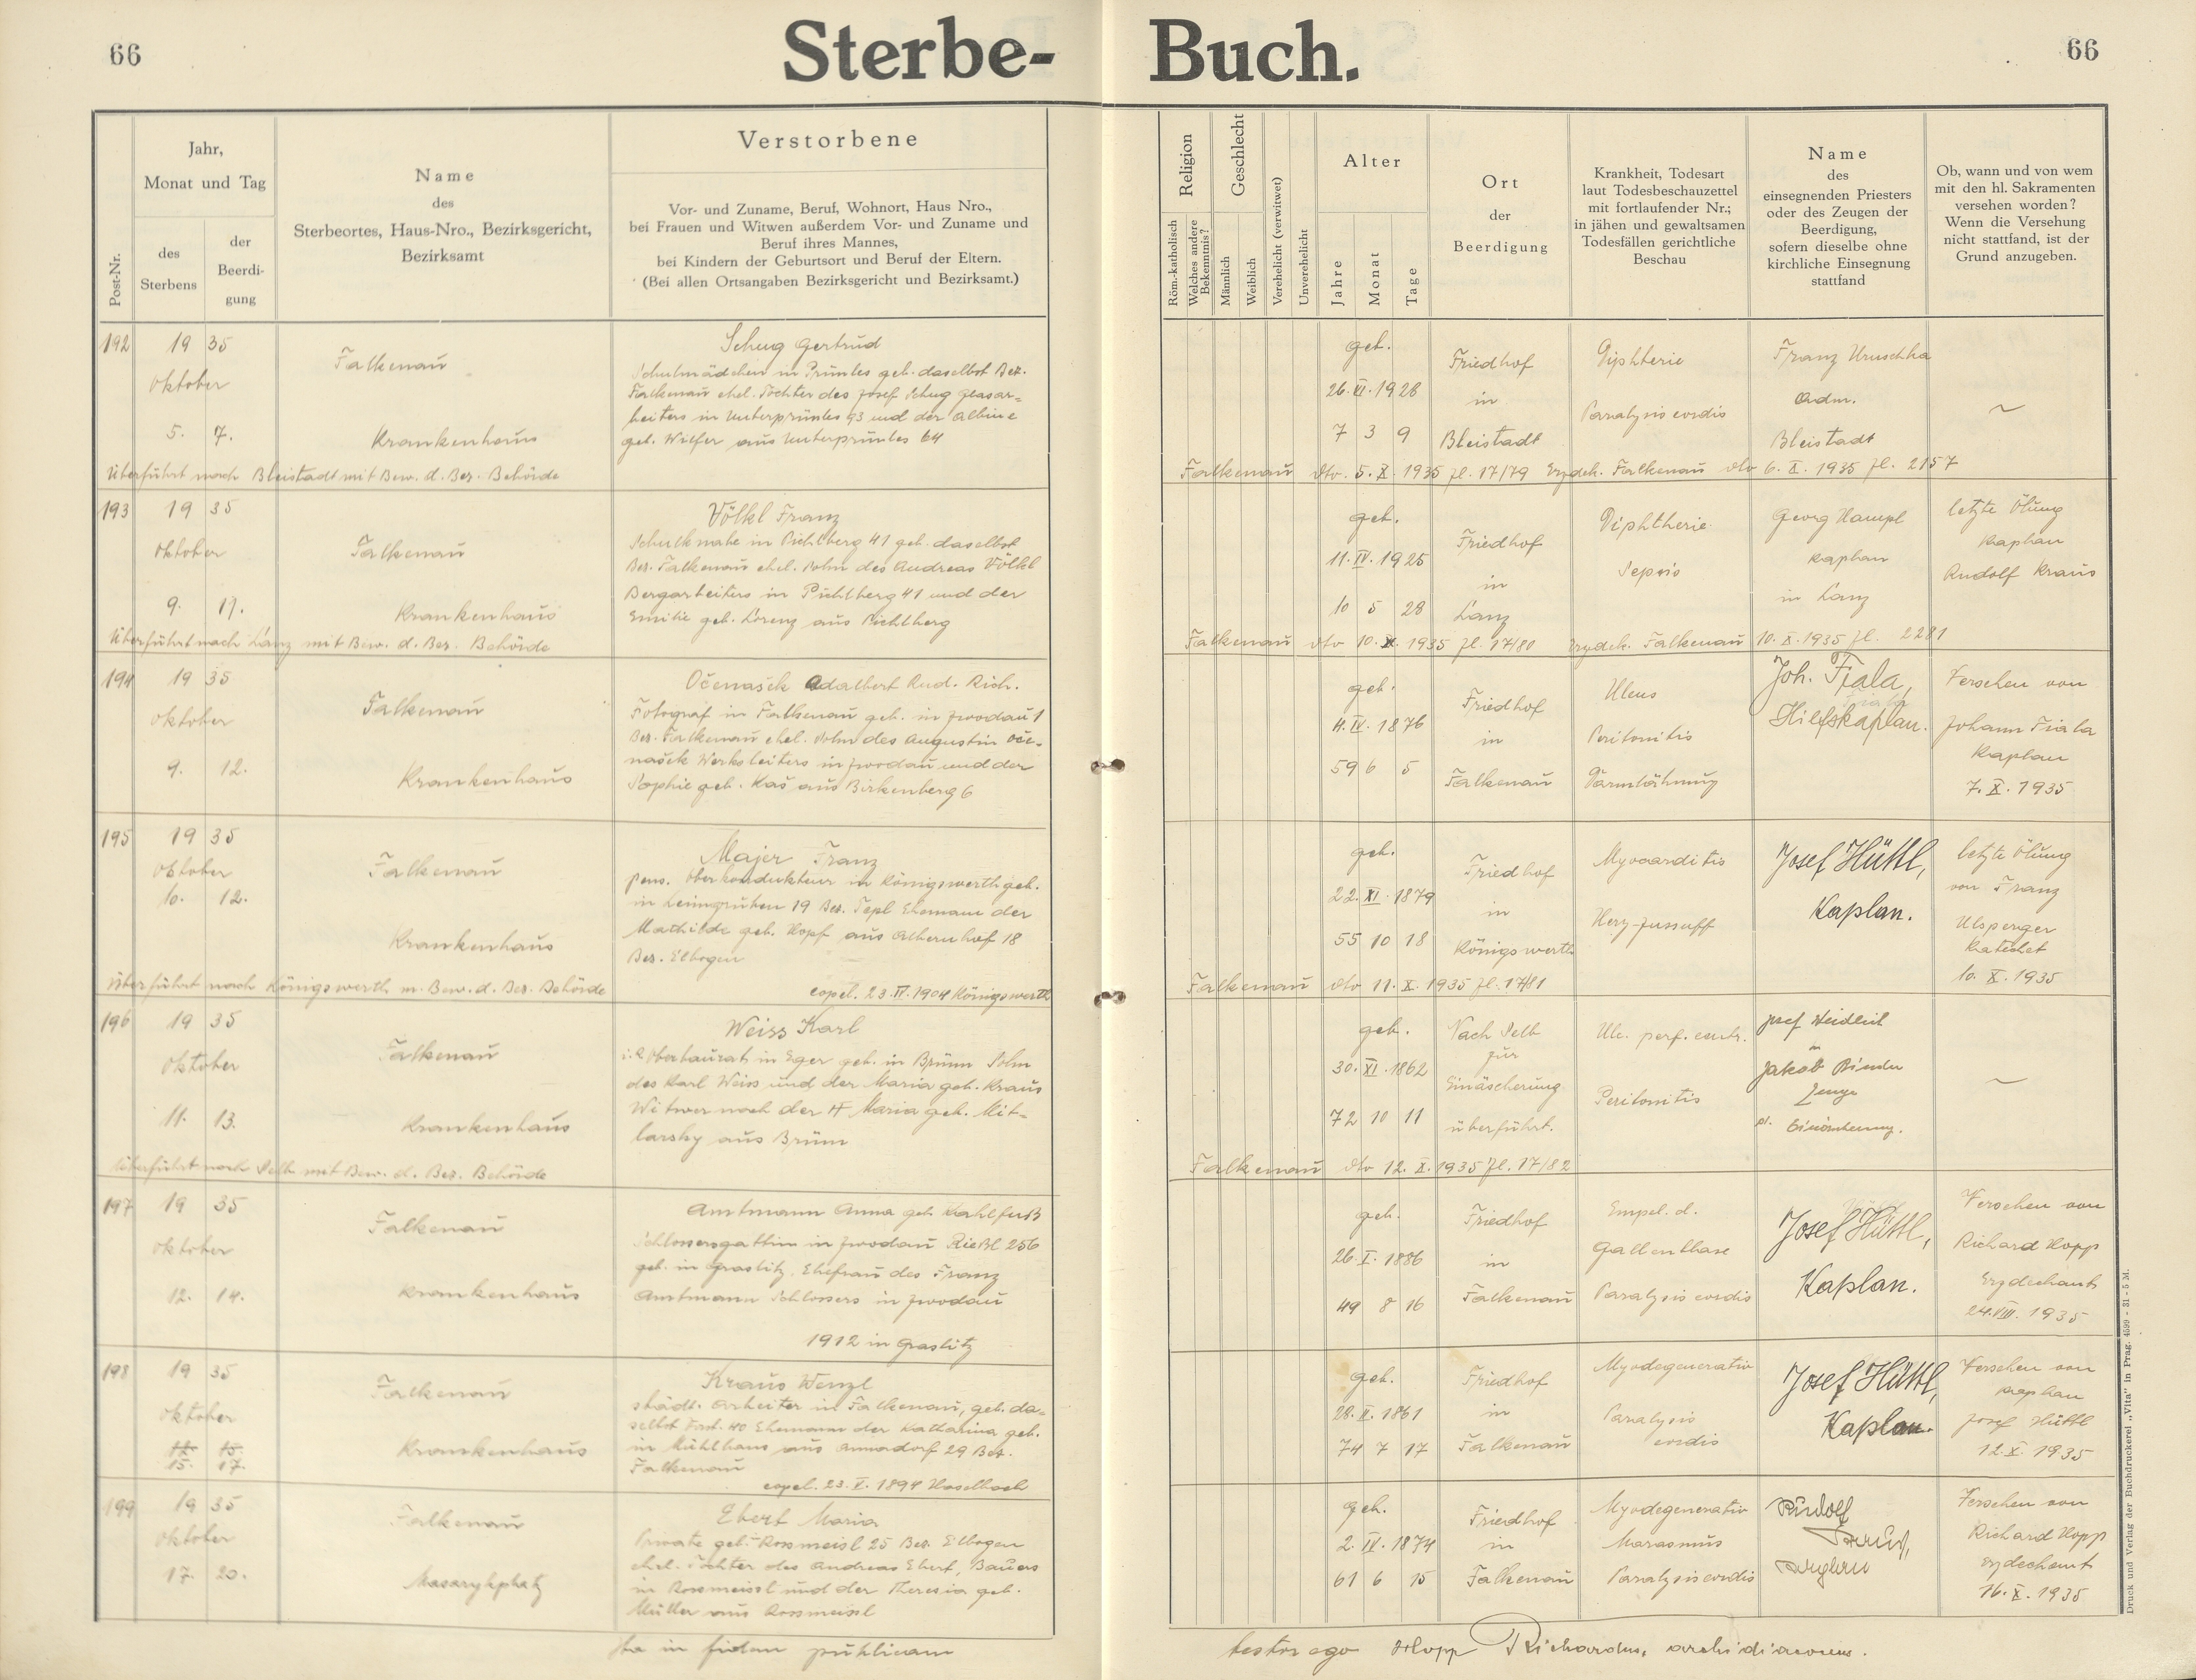 66
Sterbe-
Buch.
66
Post-Nr.
Jahr,
Monat und Tag
des
Sterbens
der
Beerdi-
gung
Name
des
Sterbeortes, Haus-Nro., Bezirksgericht,
Bezirksamt
Verstorbene
Vor- und Zuname, Beruf, Wohnort, Haus Nro.,
bei Frauen und Witwen außerdem Vor- und Zuname und
Beruf ihres Mannes,
bei Kindern der Geburtsort und Beruf der Eltern.
(Bei allen Ortsangaben Bezirksgericht und Bezirksamt.)
Religion
Röm.-katholisch
Welches andere
Bekenntnis?
Geschlecht
Männlich
Weiblich
Verehelicht (verwitwet)
Unverehelicht
Alter
Jahre
Monat
Tage
Ort
der
Beerdigung
Krankheit, Todesart
laut Todesbeschauzettel
mit fortlaufender Nr.;
in jähen und gewaltsamen
Todesfällen gerichtliche
Beschau
Name
des
einsegnenden Priesters
oder des Zeugen der
Beerdigung,
sofern dieselbe ohne
kirchliche Einsegnung
stattfand
Ob, wann und von wem
mit den hl. Sakramenten
versehen worden?
Wenn die Versehung
nicht stattfand, ist der
Grund anzugeben.
192
19 35
Oktober
5. 7.
Falkenau
Krankenhaus
Schug Gertrud
Schulmädchen in Prünles geb. daselbst Bez.
Falkenau ehel. Tochter des Josef Schug Glasar-
beiters in Unterprünles 93 und der Albine
geb. Wilfer aus Unterprünles 64
Überführt nach Bleistadt mit Bew. d. Bez. Behörde
geb.
26. VI. 1928
7 3 9
Friedhof
in
Bleistadt
Diphterie
Paralysis cordis
Franz Uruschka
Adm.
Bleistadt
Falkenau dto. 5. X. 1935 Zl. 17/79 Erzdek. Falkenau dto 6. X. 1935 Zl. 2157
193
19 35
Oktober
9. 11.
Falkenau
Krankenhaus
Völkl Franz
Schulknabe in Pichlberg 41 geb. daselbst
Bez. Falkenau ehel. Sohn des Andreas Völkl
Bergarbeiters in Pichlberg 41 und der
Emilie geb. Lorenz aus Pichlberg
Überführt nach Lanz mit Bew. d. Bez. Behörde
geb.
11. IV. 1925
10 5 28
Friedhof
in
Lanz
Diphtherie
Sepsis
Georg Hampl
Kaplan
in Lanz
letzte Ölung
Kaplan
Rudolf Kraus
Falkenau dto 10. X. 1935 Zl. 17/80 Erzdek. Falkenau 10. X. 1935 Zl. 2281
194
19 35
Oktober
9. 12.
Falkenau
Krankenhaus
Očenašek Adalbert Rud. Rich.
Fotograf in Falkenau geb. in Zwodau 1
Bez. Falkenau ehel. Sohn des Augustin Oče-
našek Werksleiters in Zwodau und der
Sophie geb. Kaš aus Birkenberg 6
geb.
4. IV. 1876
59 6 5
Friedhof
in
Falkenau
Ulcus
Peritonitis
Darmlähmung
Joh. Fiala,
Hilfskaplan.
Versehen von
Johann Fiala
Kaplan
7. X. 1935
195
19 35
Oktober
10. 12.
Falkenau
Krankenhaus
Majer Franz
pens. Oberkondukteur in Königswerth geb.
in Leimgruben 19 Bez. Tepl Ehemann der
Mathilde geb. Kopf aus Albernhof 18
Bez. Elbogen
copul. 23. IV. 1904 Königswerth
Überführt nach Königswerth m. Bew. d. Bez. Behörde
geb.
22. XI. 1879
55 10 18
Friedhof
in
Königswerth
Myocarditis
Herz-
Josef Hüttl,
Kaplan.
letzte Ölung
von Franz
Ulsperger
Katechet
10. X. 1935
Falkenau dto 11. X. 1935 Zl. 17/81
196
19 35
Oktober
11. 13.
Falkenau
Krankenhaus
Weiss Karl
i. R. Oberbaurat in Eger geb. in Brünn Sohn
des Karl Weiss und der Maria geb. Kraus
Witwer nach der Maria geb. Mit-
larsky aus Brünn
Überführt nach Selb mit Bew. d. Bez. Behörde
geb.
30. XI. 1862
72 10 11
Nach Selb
zur
Einäscherung
überführt.
Ulc. perf. ventr.
Peritonitis
Josef Heidleit
Jakob Binder
Zeuge
Falkenau dto 12. X. 1935 Zl. 17/82
197
19 35
Oktober
12. 14.
Falkenau
Krankenhaus
Amtmann Anna geb. Kahlfuß
Schlossersgattin in Zwodau Rießl 256
geb. in Graslitz. Ehefrau des Franz
Amtmann Schlossers in Zwodau
1912 in Graslitz
geb.
26. I. 1886
49 8 16
Friedhof
in
Falkenau
Empel. d.
Gallenblase
Paralysis cordis
Josef Hüttl,
Kaplan.
Versehen von
Richard Hopp
Erzdechant
24. VIII. 1935
198
19 35
Oktober
15. 17.
Falkenau
Krankenhaus
Kraus Wenzl
städt. Arbeiter in Falkenau, geb. da-
selbst 40 Ehemann der Katharina geb.
in Mühlhaus aus Annadorf 29 Bez.
Falkenau
copul. 23. X. 1894 Haselbach
geb.
28. II. 1861
74 7 17
Friedhof
in
Falkenau
Myodegeneratio
Paralysis
cordis
Josef Hüttl,
Kaplan.
Versehen von
Kaplan
Josef Hüttl
12. X. 1935
199
19 35
Oktober
17. 20.
Falkenau
Masarykplatz
Ebert Maria
Private geb. Rossmeisl 25 Bez. Elbogen
ehel. Tochter des Andreas Ebert, Bauers
in Rossmeissl und der Theresia geb.
Müller aus Rossmeissl
geb.
2. IV. 1874
61 6 15
Friedhof
in
Falkenau
Myodegeneratio
Marasmus
Paralysis cordis
Rudolf
Versehen von
Richard Hopp
Erzdechant
16. X. 1935
Ita in fidem publicam
testor ego Hopp Richardus, archidiaconus.
Druck und Verlag der Buchdruckerei „Vita" in Prag. 4599 - 31 - 5 M.